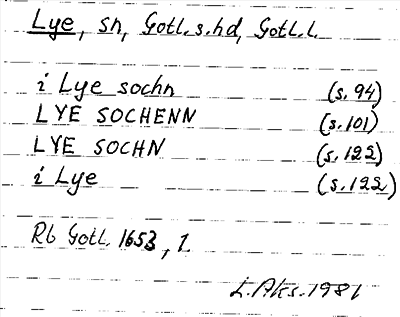 Lye, sn, Gotl.s.hd, Gotl.l.
i Lye sochn (s.94)
LYE SOCHENN (s.101)
LYE SOCHN (s.122)
i Lye (s.122)
Rb Gotl. 1653, 1.
L.Aks. 1981